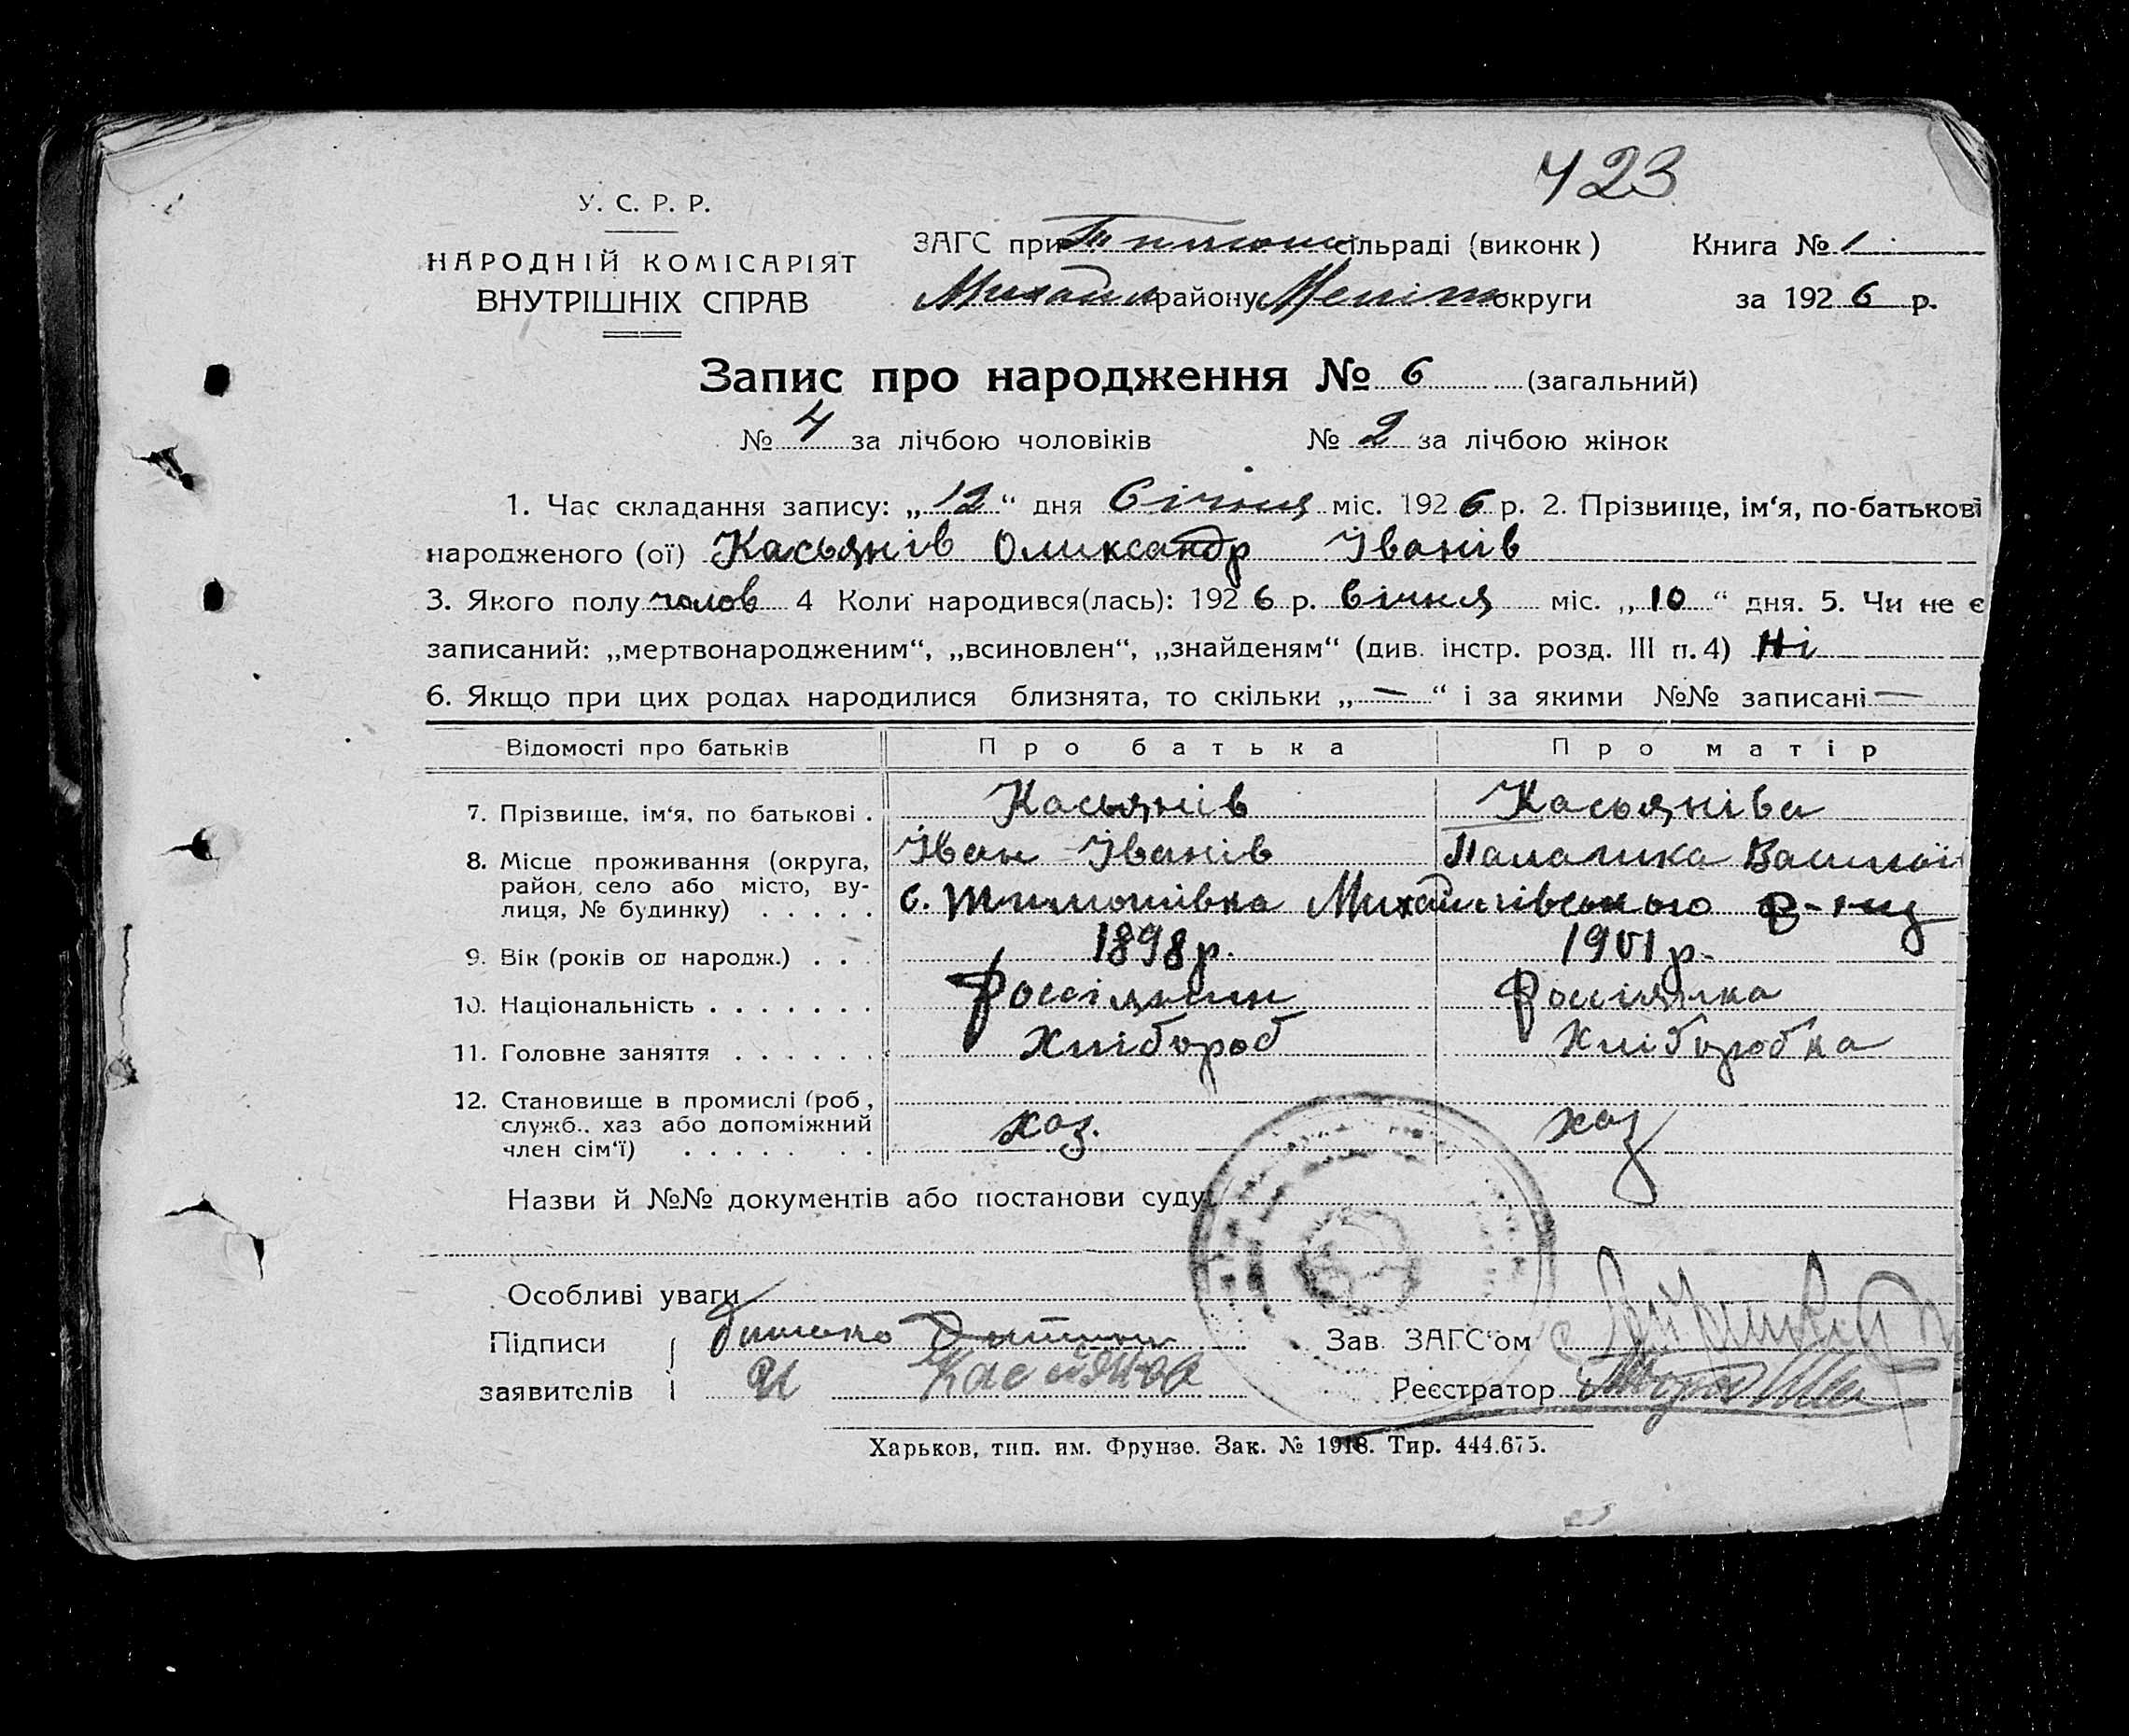 423
У. С. Р. Р.
НАРОДНІЙ КОМІСАРІЯТ
ВНУТРІШНІХ СПРАВ
ЗАГС при сільраді (виконк) Книга № 1
Михайл району Меліт округи за 1926 р.
Запис про народження № 6 (загальний)
№ 4 за лічбою чоловіків № 2 за лічбою жінок
1. Час складання запису: „12“ дня Січня міс. 1926 р. 2. Прізвище, ім‘я, по-батькові
народженого (ої) Касьянів Олександр Іванів
3. Якого полу чолов 4 Коли народився(лась): 1926 р. Січня міс. „10“ дня. 5. Чи не є
записаний: „мертвонародженим“, „всиновлен“, „знайденям“ (див. інстр. розд. III п. 4) Ні
6. Якщо при цих родах народилися близнята, то скільки „—“ і за якими №№ записані —
Відомості про батьків Про батька Про матір
7. Прізвище, ім‘я, по батькові . Касьянів Касьяніва
Іван Іванів Палашка Васил
8. Місце проживання (округа, район, село або місто, вулиця, № будинку) . . . . . с. Тимошівка Михайлівського р-ну
9. Вік (років од народж.) . . . 1898 р. 1901 р.
10. Національність . . . . . . . Россіянин Россіянка
11. Головне заняття . . . . . . . Хлібороб Хліборобка
12. Становище в промислі (роб, служб., хаз або допоміжний член сім‘ї) . . . . . . . хаз. хаз
Назви й №№ документів або постанови суду
Особливі уваги
Підписи батько Зав. ЗАГС‘ом
заявителів И Касьянов Реєстратор
Харьков, тип. им. Фрунзе. Зак. № 1918. Тир. 444.675.